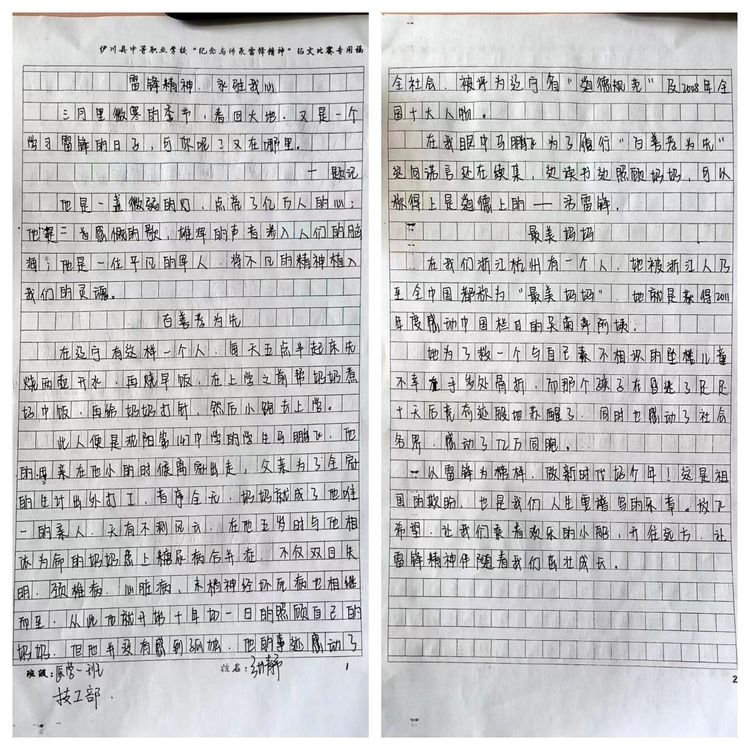 伊川县中等职业学校“纪念与传承雷锋精神”征文比赛专用稿
雷锋精神，永驻我心
三月里微寒的季节，春回大地，又是一个
学习雷锋的日子，可你呢？又在哪里。
— 题记
他是一盏微弱的灯，点亮了亿万人的心；
他是一首感慨的歌，雄浑的声音步入人们的脑
海；他是一位平凡的军人，将不凡的精神植入
我们的灵魂。
百善孝为先
在辽宁有这样一个人，每天五点半起床先
烧两壶开水，再烧早饭，在上学之前帮奶奶煮
好中饭，再给奶奶打针，然后小跑去上学。
此人便是沈阳 中学的学生马鹏飞，他
的母亲在他小的时候离家出走，父亲为了全家
的生计出外打工，音序全无，奶奶就成了他唯
一的亲人，天有不测风云，在他五岁时与他相
依为命的奶奶患上糖尿病合并症，不仅双目失
明，颈椎病，心脏病，末梢神经坏死病也相继
而至，从此他就开始十年如一日的照顾自己的
奶奶，但他并没有感到孤独，他的事迹感动了
班级： 姓名： 静 1
技工部．
全社会，被评为辽宁省“道德规范”及2008年全
国十大人物。
在我眼中马鹏飞为了履行“百善孝为先”
这句诺言还在续集，边读书边照顾奶奶，可以
称得上是道德上的一 雷锋。
最美妈妈
在我们浙江杭州有一个人，她被浙江人乃
至全中国都称为“最美妈妈”，她就是获得2011
年度感动中国栏目的吴菊萍阿姨。
她为了救一个与自己素不相识的坠楼儿童
不幸 手多处骨折，而那个孩子在昏迷了足足
十天后 有 般地苏醒了，同时也感动了社会
各界，感动了亿万同胞。
以雷锋为榜样，做新时代好少年！这是祖
国的 的，也是我们人生里谱写的乐章。放飞
希望，让我们乘着欢乐的小船，开往远方，让
雷锋精神伴随着我们茁壮成长。
2